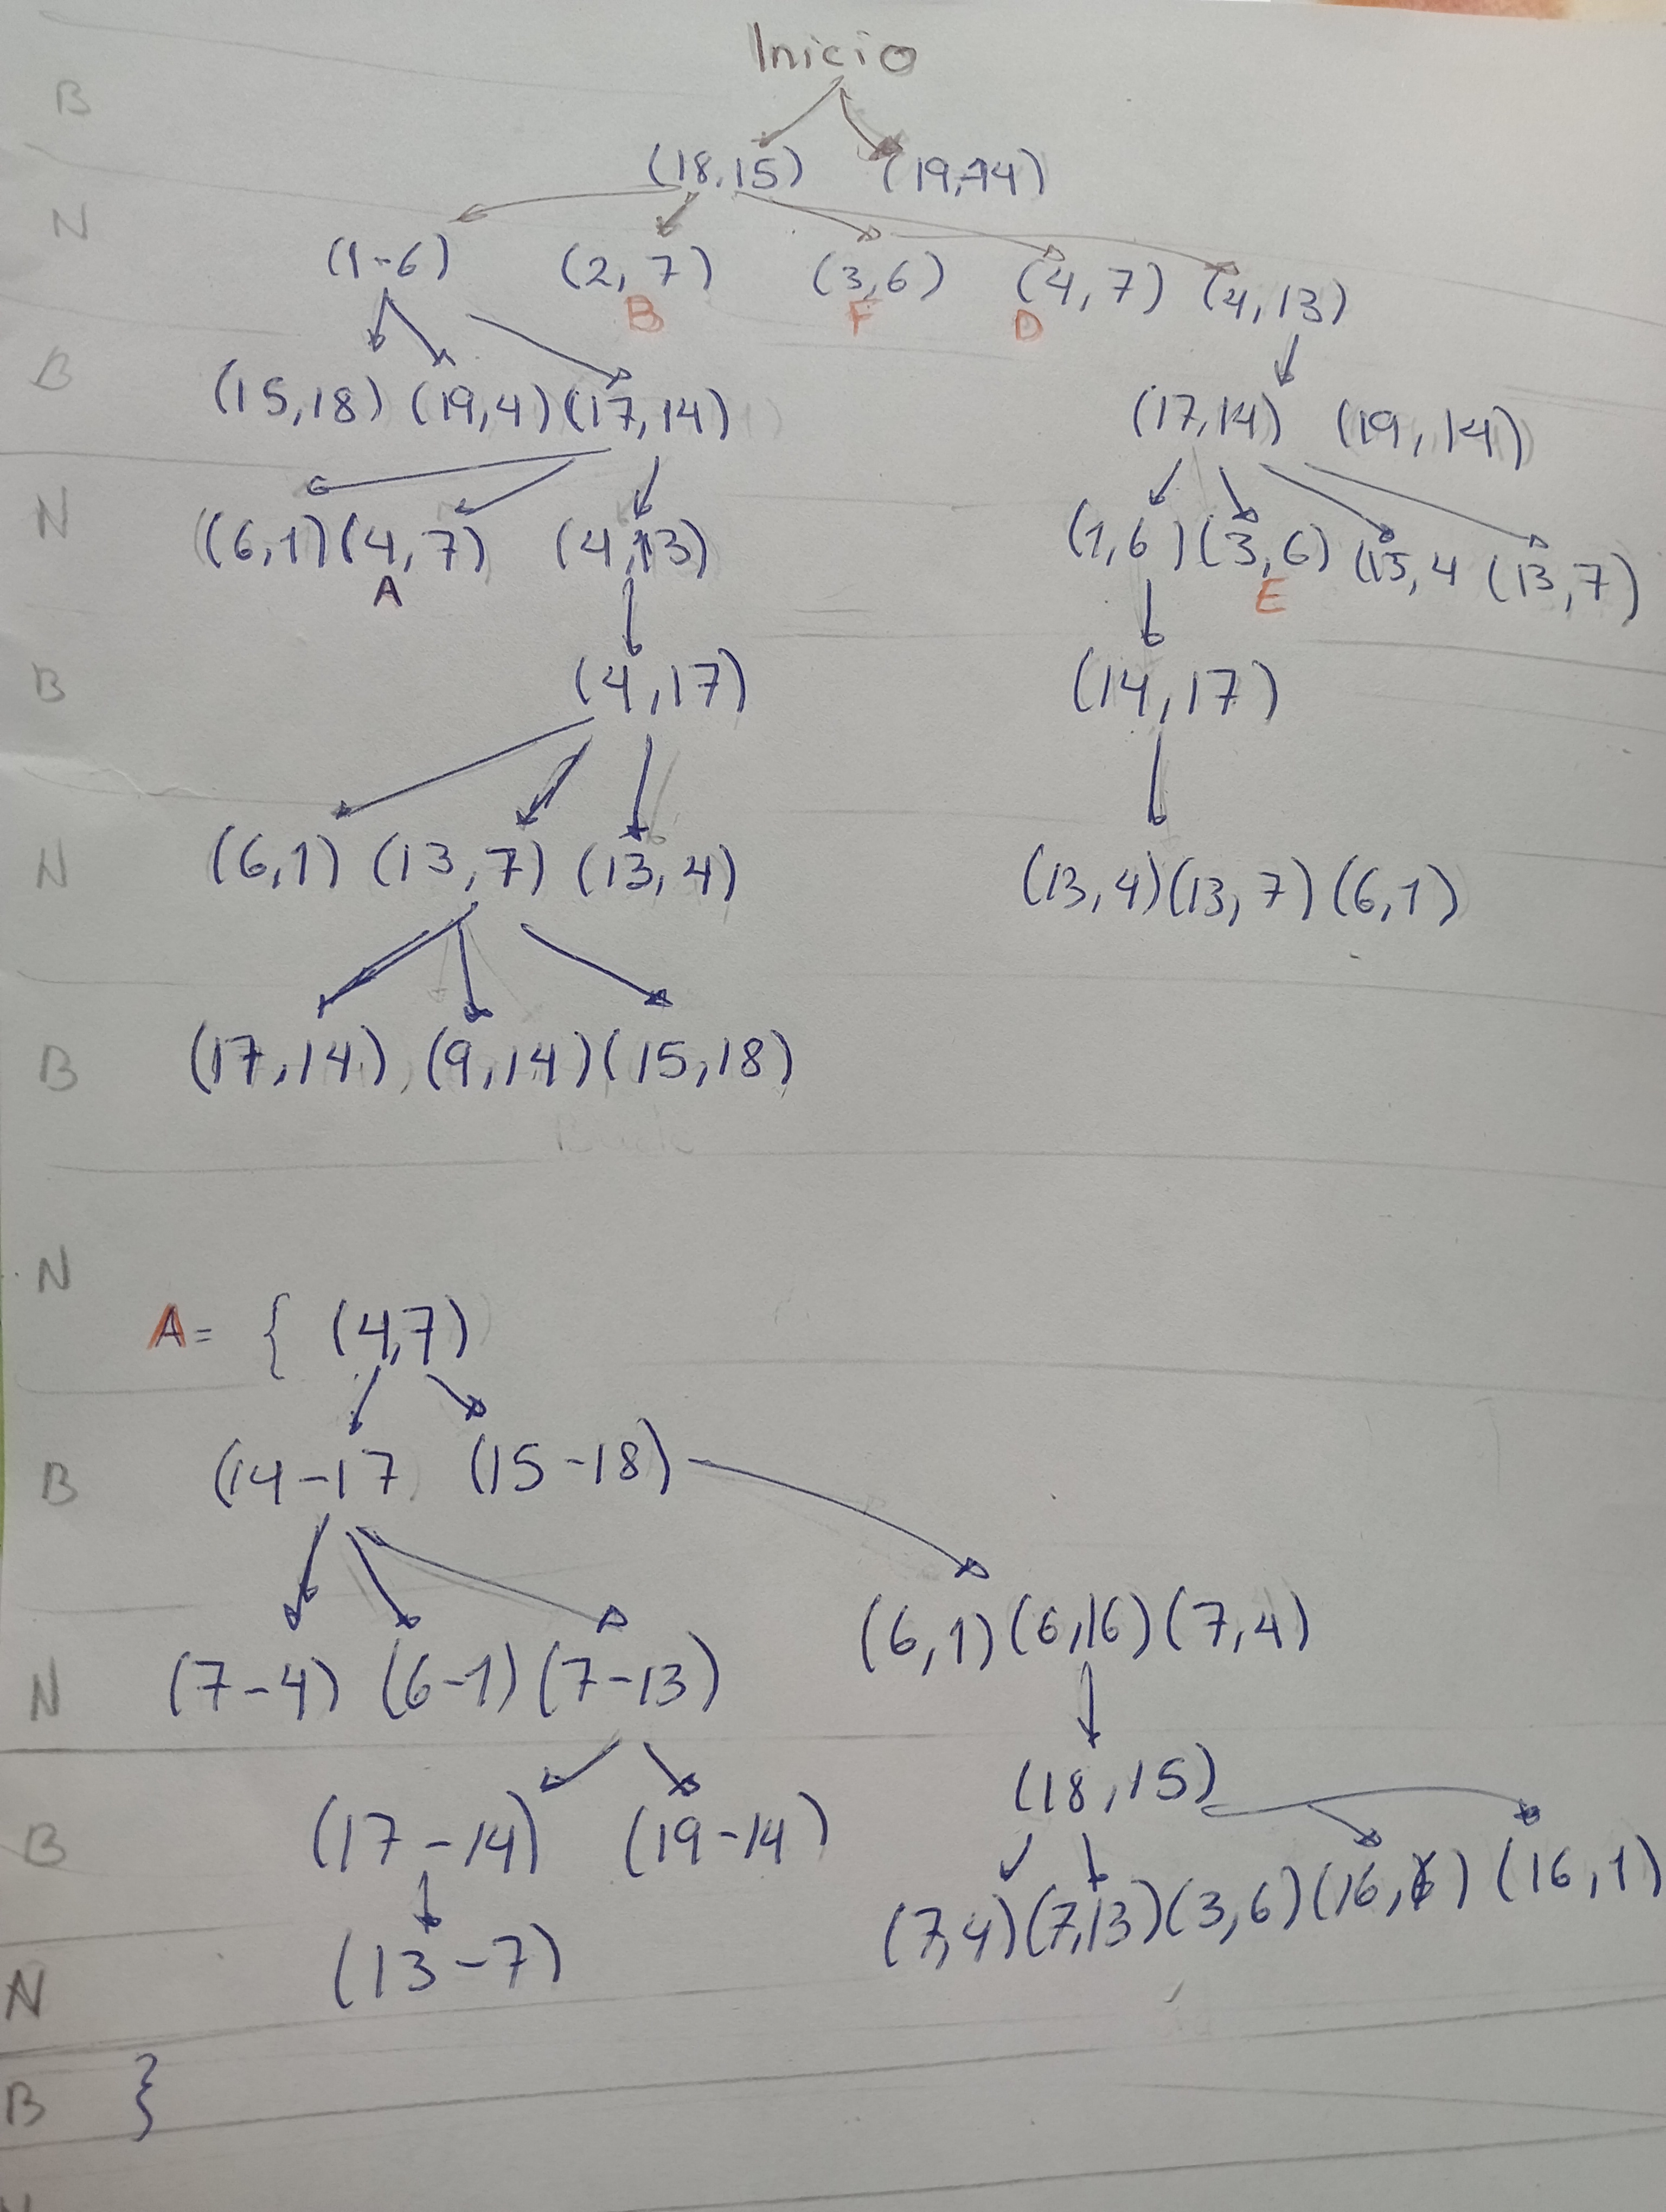 Inicio
B
(18,15) (19,14)
N
(1-6) (2,7) (3,6) (4,7) (4,13)
B F D
B
(15,18) (19,4) (17,14) (17,14) (19,14)
N
(6,1) (4,7) (4,13) (1,6) (3,6) (15,4 (13,7)
A E
B
(4,17) (14,17)
N
(6,1) (13,7) (13,4) (13,4) (13,7) (6,1)
B
(17,14) (9,14) (15,18)
N
A = { (4,7)
B
(14-17 (15-18)
(6,1) (6,16) (7,4)
N
(7-4) (6-1) (7-13)
(18,15)
B
(17-14) (19-14)
(7,4) (7,13) (3,6) (16,6) (16,1)
N
(13-7)
B }